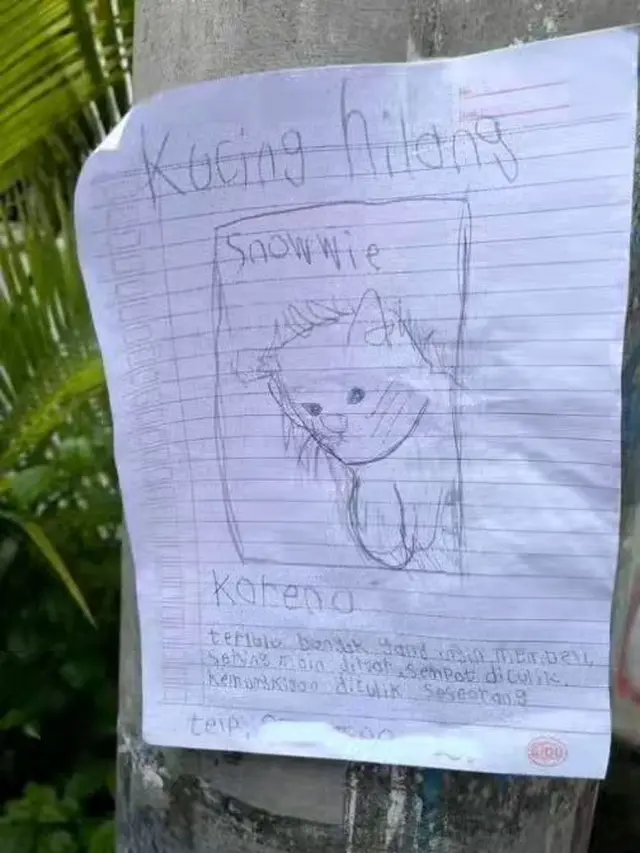 Kucing hilang
Snowwie
Karena
terlalu banyak yang ingin membeli,
sering main di, sempat diculik.
Kemungkinan diculik seseorang
telp,
SIDU